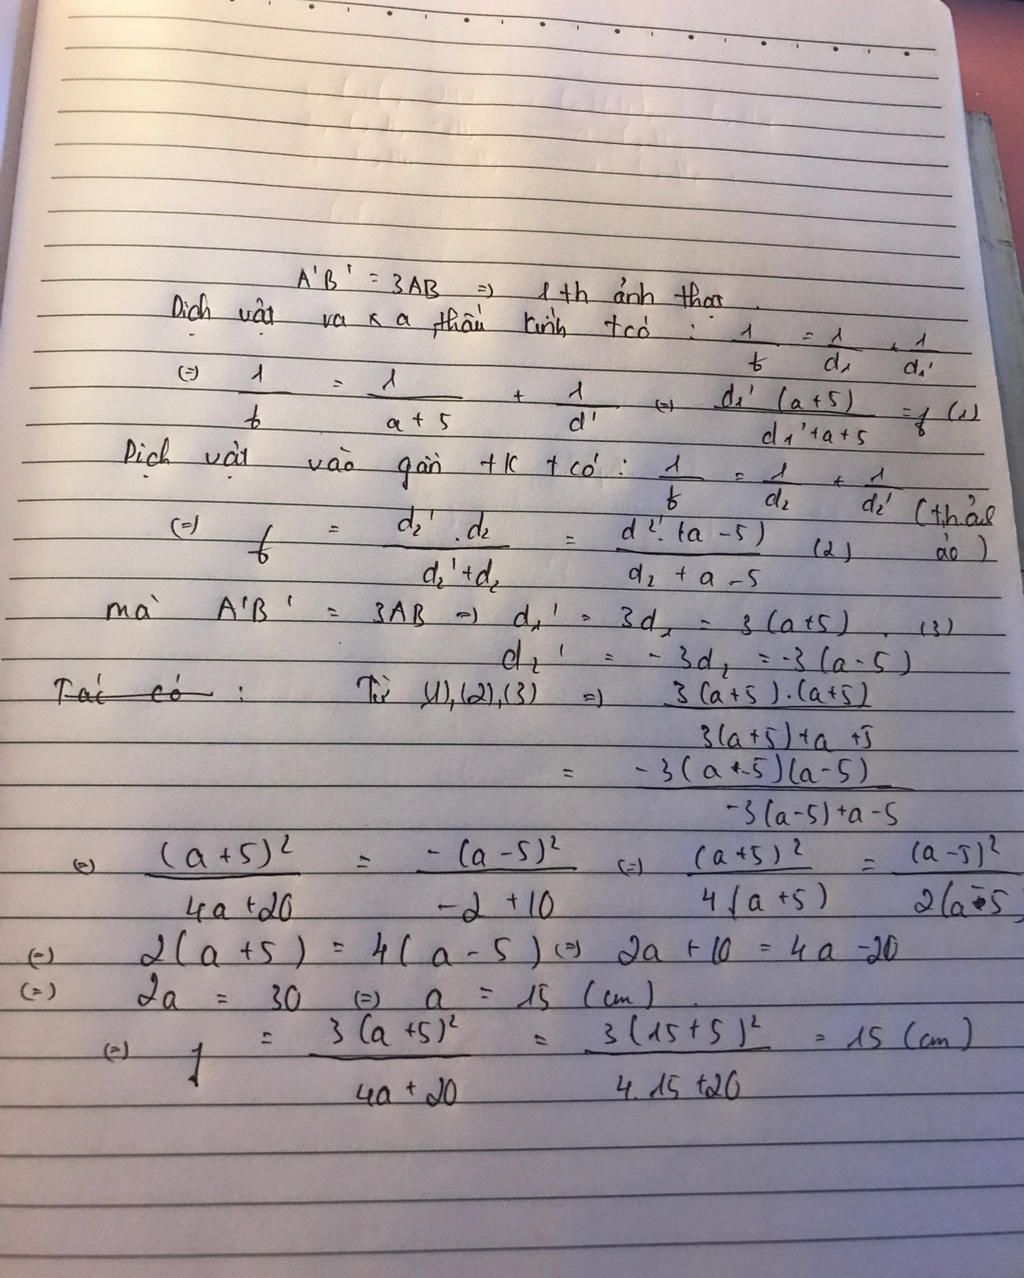 A'B' = 3AB => 1 th ảnh thật.
Dịch vật ra xa thấu kính tcó : 1/f = 1/d₁ + 1/d₁'
(=) 1/f = 1/(a + 5) + 1/d' (=) d₁' (a + 5)/(d₁' + a + 5) = f (1)
Dịch vật vào gần tK tcó : 1/f = 1/d₂ + 1/d₂' (th ảnh ảo)
(=) f = d₂' . d₂/(d₂' + d₂) = d₂' . (a - 5)/(d₂ + a - 5) (2)
mà A'B' = 3AB => d₁' = 3d₁ = 3(a+5) . (3)
d₂' = - 3d₂ = -3(a - 5)
Tác có : Từ (1),(2),(3) => 3(a+5).(a+5)/(3(a+5)+a+5)
= -3(a-5)(a-5)/(-3(a-5)+a-5)
(=) (a+5)²/(4a+20) = -(a-5)²/(-2+10) (=) (a+5)²/(4(a+5)) = (a-5)²/(2(a-5)
(=) 2(a + 5) = 4(a - 5) (=) 2a + 10 = 4a - 20
(=) 2a = 30 (=) a = 15 (cm).
(=) f = 3(a+5)²/(4a+20) = 3(15+5)²/(4.15+20) = 15 (cm)